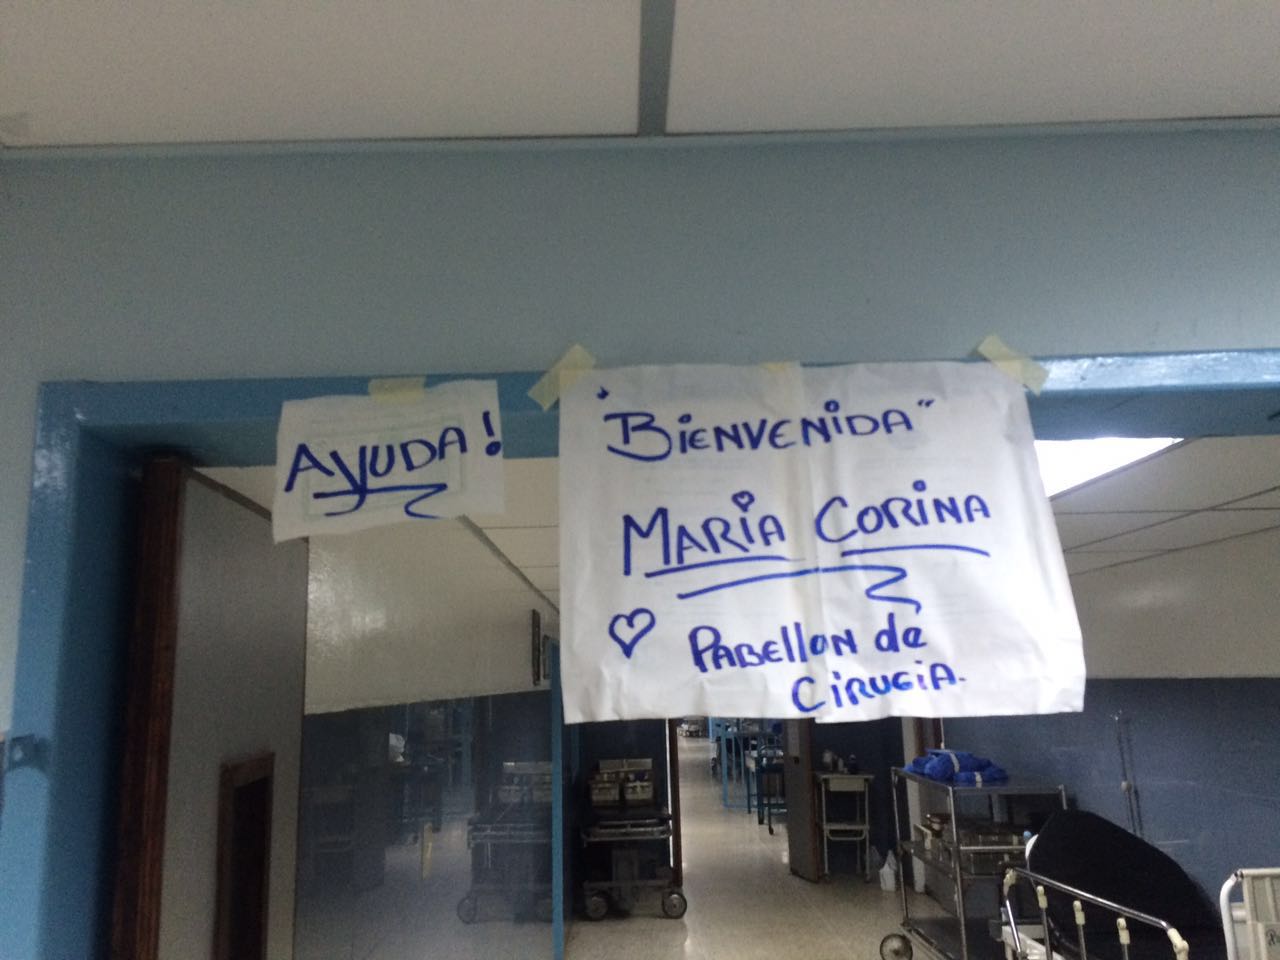 AYUDA!
"BIENVENIDA"
MARIA CORINA
PABELLON de
CIRUGIA.